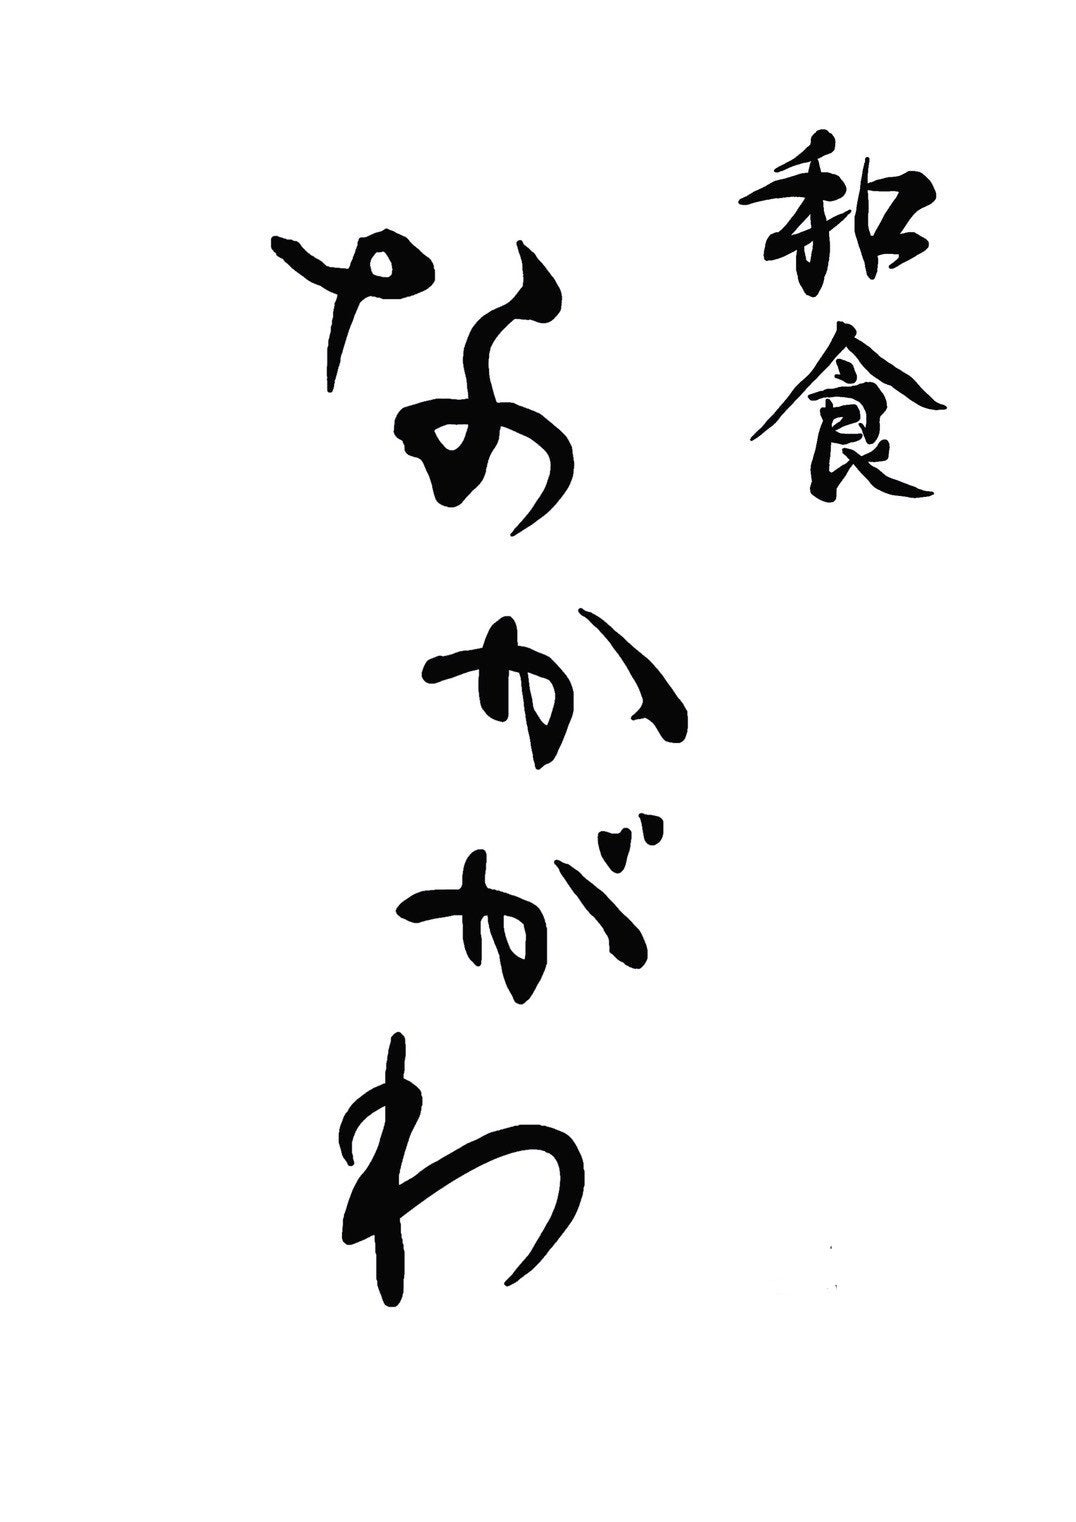 和食
なかがわ